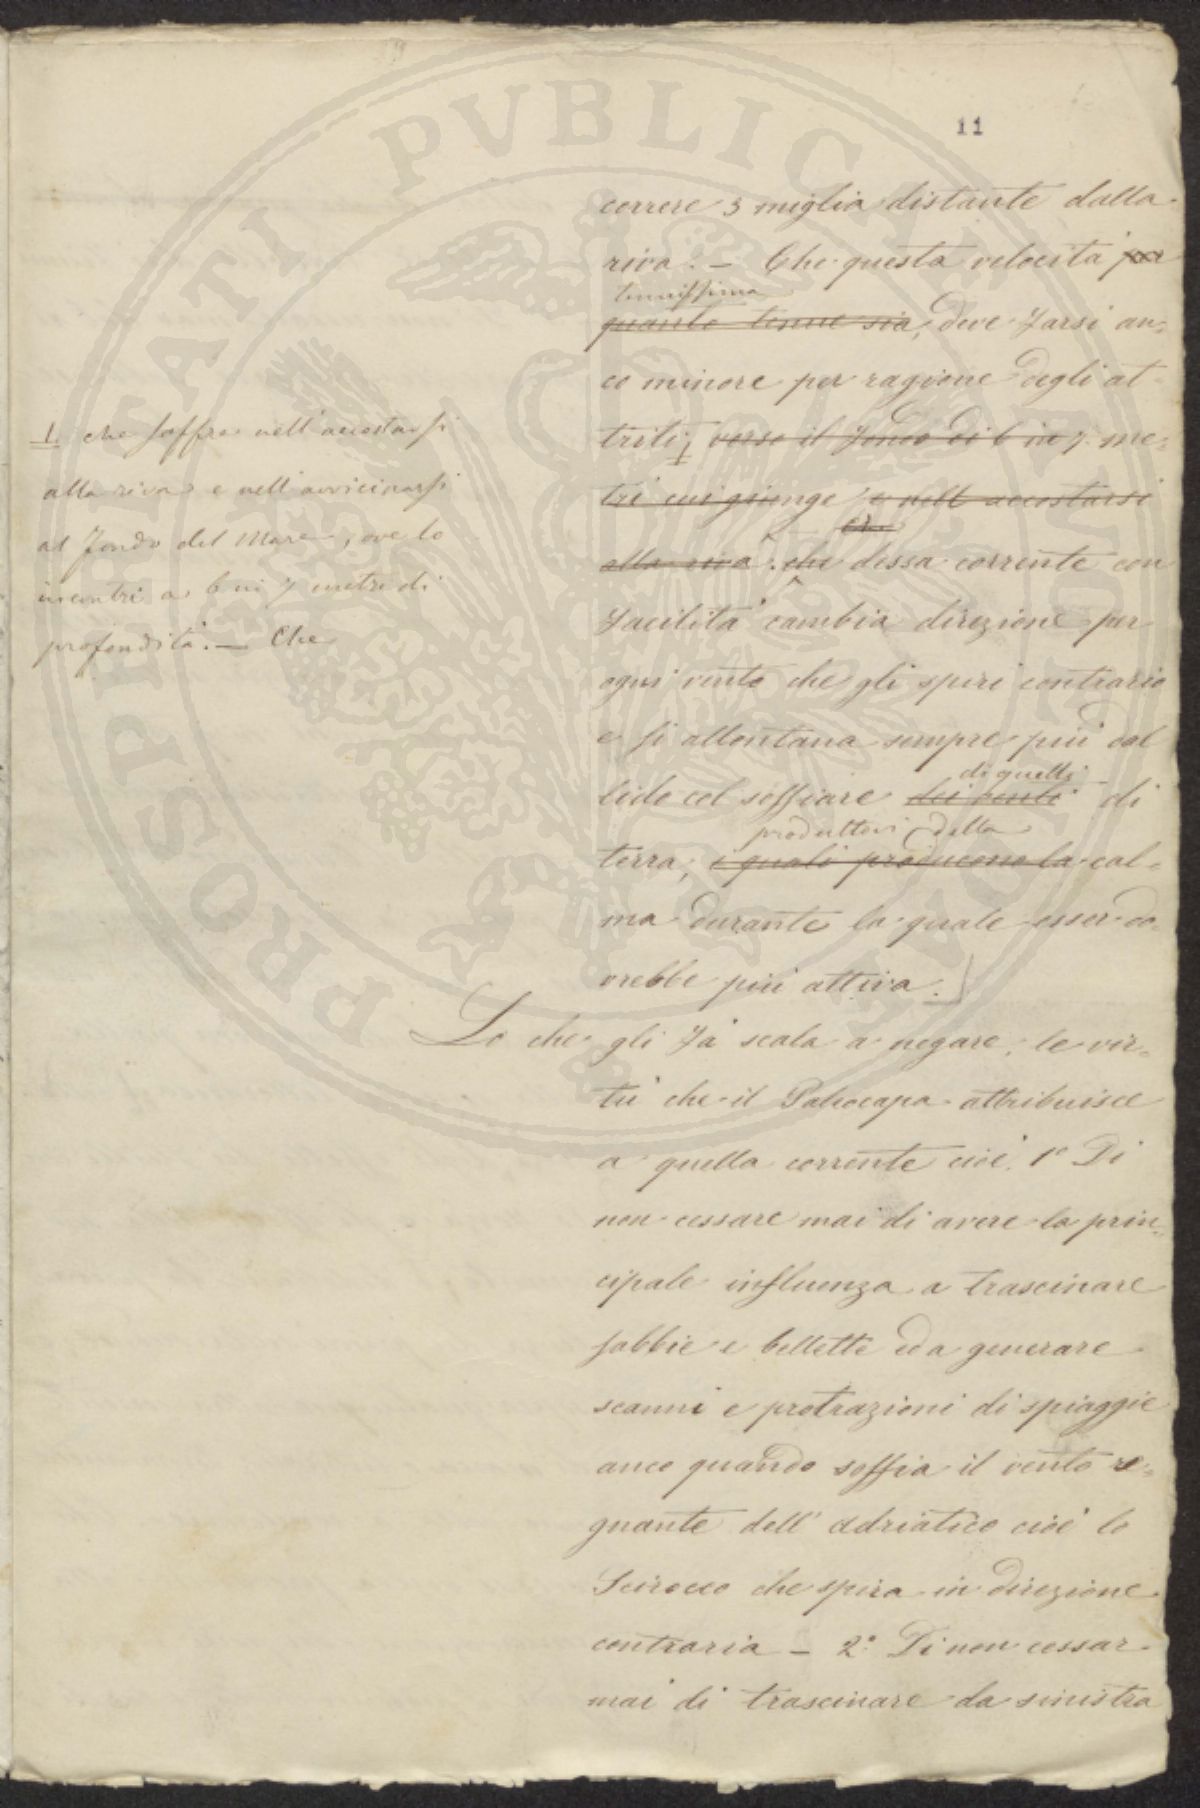 11
PROSPERITATI PUBLICAE NOVAE
correre 3 miglia distante dalla
riva. – Che questa velocità per
tenuissima
quanto tenue sia, deve farsi an=
co minore per ragione degli at=
triti verso il fondo di 6 in 7 me=
tri cui giunge e nell'accostarsi
alla riva. che dessa corrente con
facilità cambia direzione per
ogni vento che gli spiri contrario
e si allontana sempre più dal
di quelli
lido col soffiare dei venti di
produttori della
terra, i quali producono la cal=
ma durante la quale esser do=
vrebbe più attiva.
Lo che gli fa scala a negare le vir=
tù che il Paleocapa attribuisce
a quella corrente cioè 1° Di
non cessare mai di avere la prin=
cipale influenza a trascinare
sabbie e bellette ed a generare
scanni e protrazioni di spiaggie
anco quando soffia il vento re=
gnante dell'adriatico cioè lo
Scirocco che spira in direzione
contraria – 2° Di non cessar
mai di trascinare da sinistra
1 che soffre nell'accostarsi
alla riva e nell'avvicinarsi
al fondo del Mare, ove lo
incontri a 6 in 7 metri di
profondità. – Che